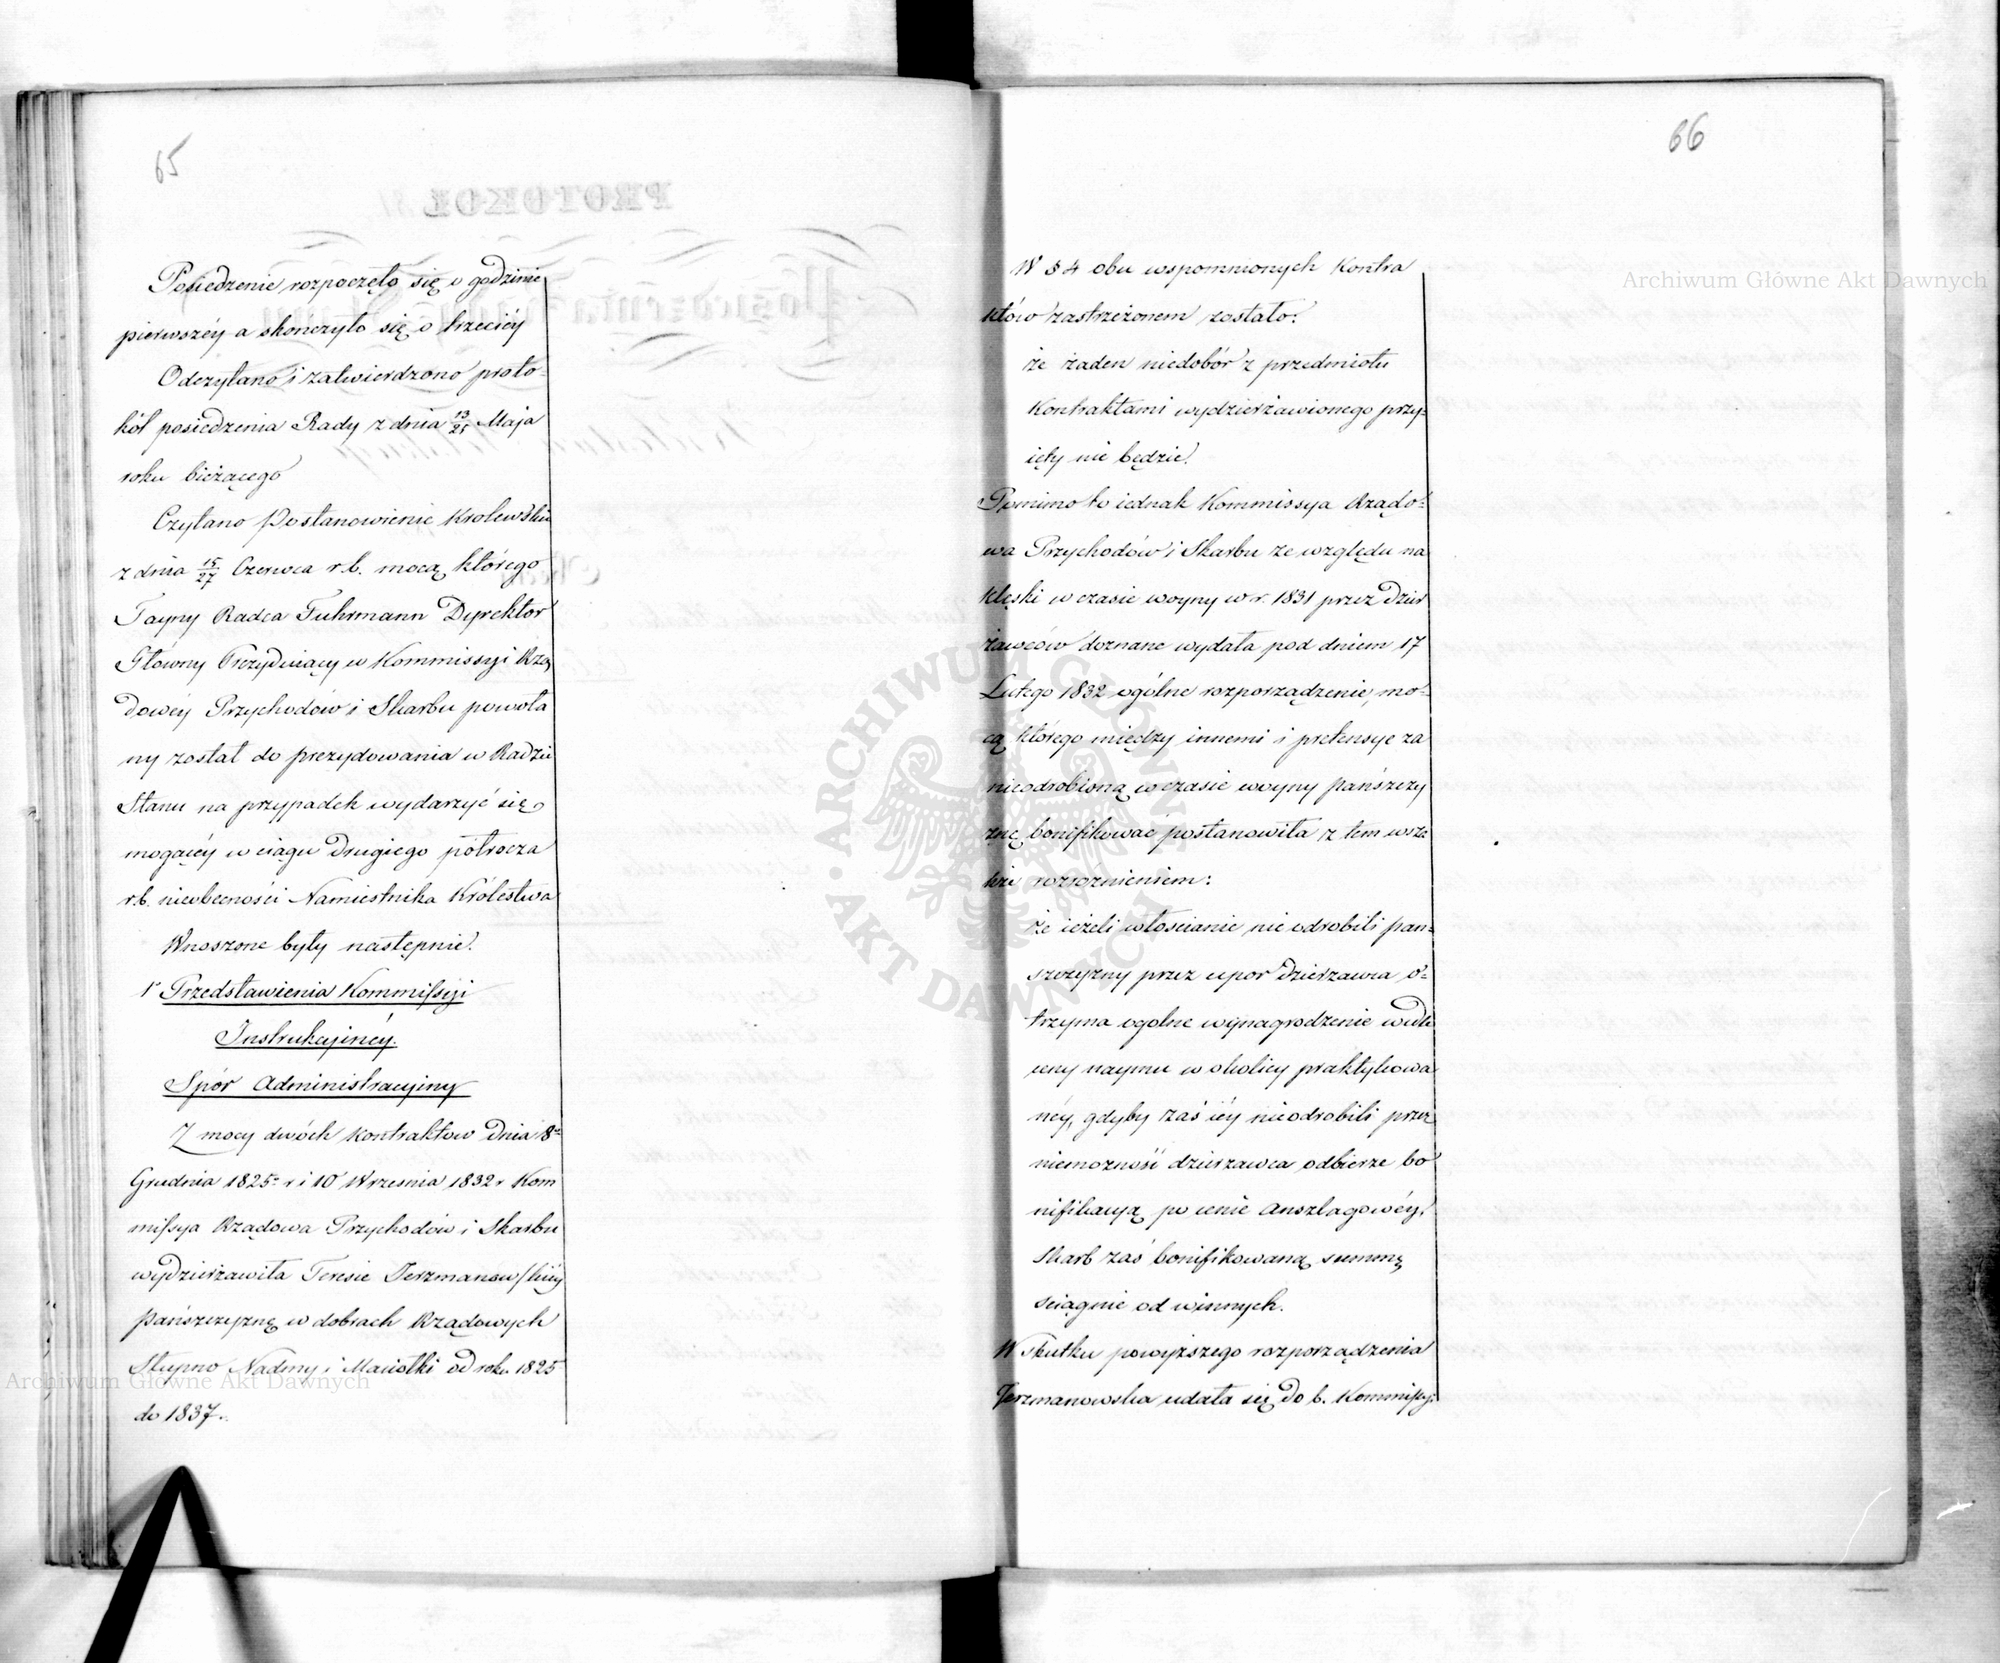 65
Posiedzenie rozpoczęło się o godzinie
pierwszéy a skonczyło się o trzeciéy
Odczytano i zatwierdzono proto-
kół posiedzenia Rady z dnia 13/25 Maja
roku bieżącego
Czytano Postanowienie Krolewskie
z dnia 15/27 Czerwca r.b. mocą którego
Tayny Radca Fuhrmann Dyrektor
Główny Prezyduiący w Kommissyi Rzą
dowéy Przychodów i Skarbu powoła
ny został do prezydowania w Radzie
Stanu na przypadek wydarzyć się
mogącéy w ciągu drugiego półrocza
r.b. nieobecności Namiestnika Królestwa
Wnoszone były następnie.
1° Przedstawienia Kommissyi
Instrukcyinéy.
Spór Administracyiny
Z mocy dwóch kontraktow dnia 8go
Grudnia 1825 r i 10 Wrzesnia 1832 r Kom
missya Rządowa Przychodów i Skarbu
wydzierżawiła Teresie Jerzmanowskiéy
Pańszczyznę w dobrach Rządowych
Słupno Nadmy i Maciołki od roku 1825
do 1837.
66
W § 4 obu wspomnionych Kontra
któw zastrzeżonem zostało:
że żaden niedobór z przedmiotu
Kontraktami wydzierżawionego przy-
ięty nie będzie.
Pomimo to iednak Kommissya Rządo-
wa Przychodów i Skarbu ze względu na
klęski w czasie woyny w r. 1831 przez dzier
żawców doznane wydała pod dniem 17
Lutego 1832 ogólne rozporządzenie, mo-
cą którego między innemi i pretensye za
nieodrobioną w czasie woyny pańszczy
znę bonifikować postanowiła z tem wsza
kże rozróżnieniem:
że ieżeli włoscianie nie odrobili pan-
szczyzny przez upor dzierzawca o-
trzyma ogolne wynagrodzenie wedle
ceny naymu w okolicy praktykowa
néy, gdyby zaś iéy nieodrobili przez
niemozność dzierzawca odbierze bo
nifikacyą po cenie Anszlagowéy,
Skarb zaś bonifikowaną summę
sciągnie od winnych.
W Skutku powyższego rozporządzenia
Jerzmanowska udała się do b. Kommissyi
Archiwum Główne Akt Dawnych
Archiwum Główne Akt Dawnych
ARCHIWUM GŁÓWNE AKT DAWNYCH